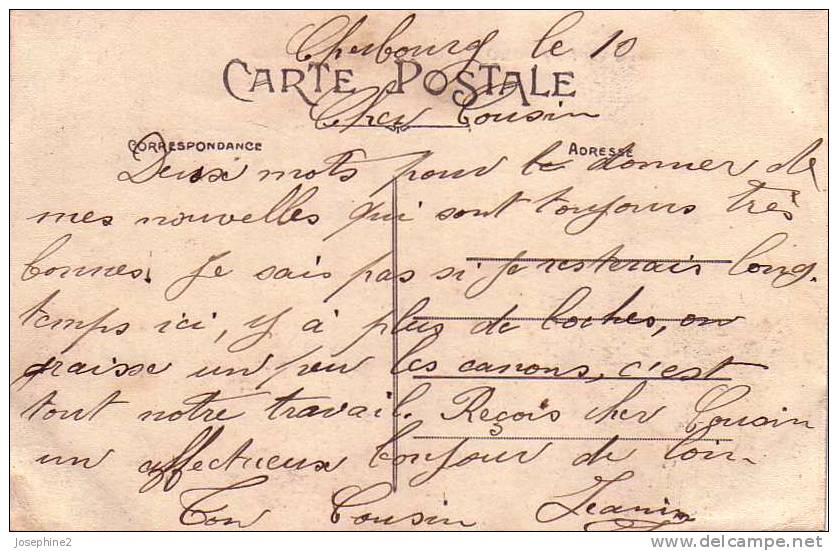 Cherbourg le 10
CARTE POSTALE
Cher Cousin
CORRESPONDANCE
ADRESSE
Deux mots pour te donner de
mes nouvelles qui sont toujours très
bonnes. Je sais pas si je resterais long.
temps ici, y a plus de boches, on
graisse un peu les canons, c'est
tout notre travail. Reçois cher Cousin
un affectueux bonjour de loin.
Ton Cousin
Josephine2
www.delcampe.net